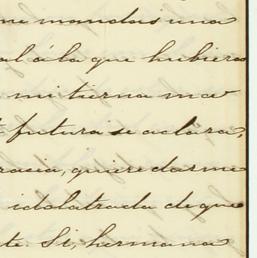 me mandais una
al á la que hubiera
mi turna ma
futura se aclara,
racia, quiere darme
idolatrada de que
te Si, hermana